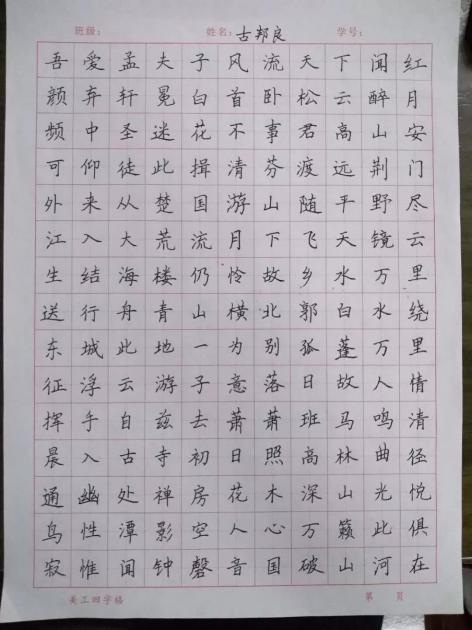 班级： 姓名：古邦良 学号：
吾爱孟夫子风流天下闻红
颜弃轩冕白首卧松云醉月
频中圣迷花不事君高山安
可仰徒此揖清芬渡远荆门
外来从楚国游山随平野尽
江入大荒流月下飞天镜云
生结海楼仍怜故乡水万里
送行舟青山横北郭白水绕
东城此地一为别孤蓬万里
征浮云游子意落日故人情
挥手自兹去萧萧班马鸣清
晨入古寺初日照高林曲径
通幽处禅房花木深山光悦
鸟性潭影空人心万籁此俱
寂惟闻钟磬音国破山河在
美工田字格 第 页